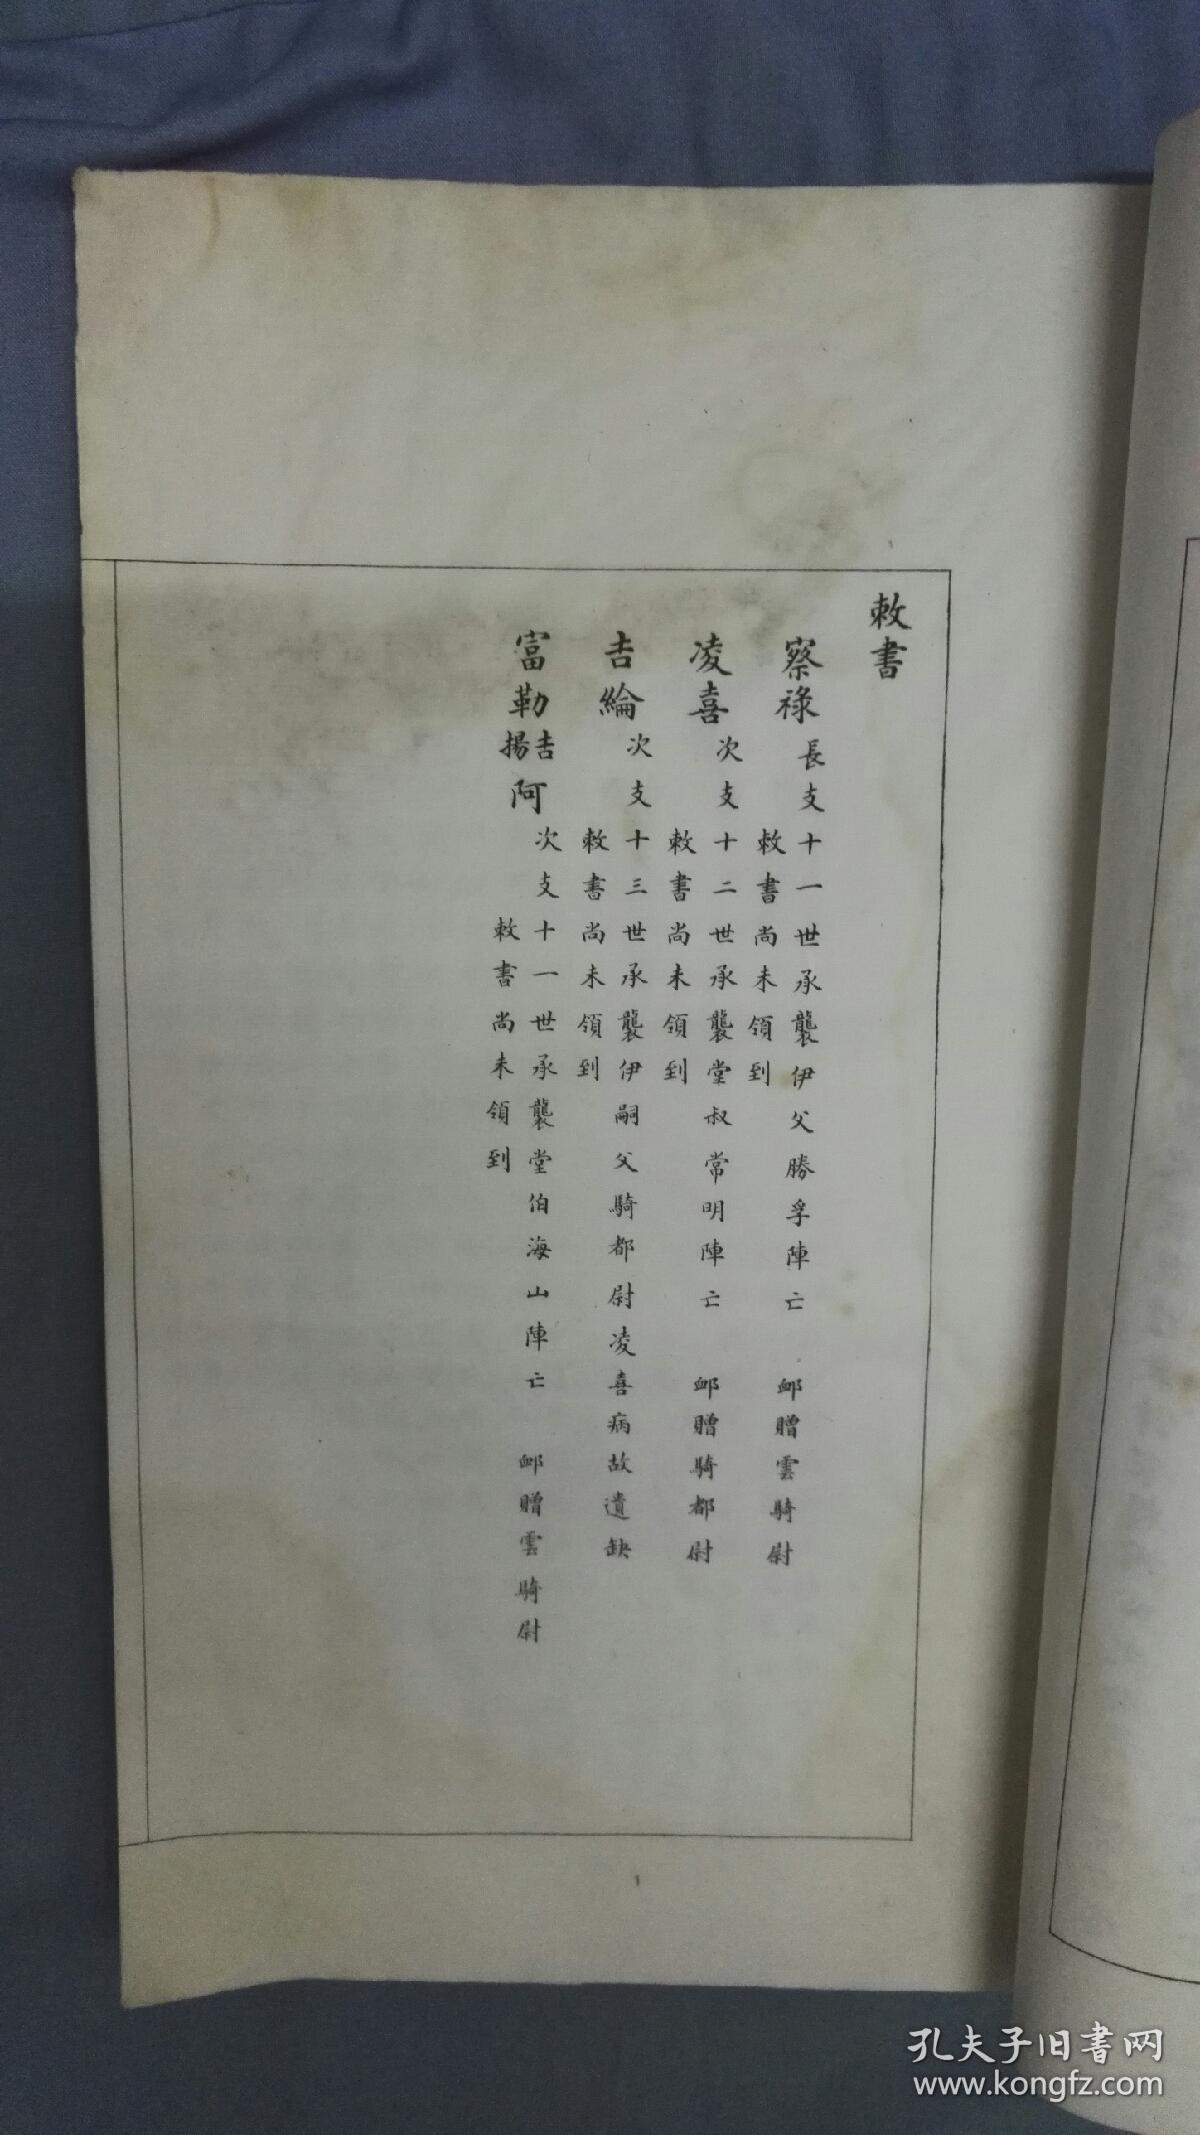 敕書
察祿 長支十一世承襲伊父勝孚陣亡 卹贈雲騎尉
敕書尚未領到
凌喜 次支十二世承襲堂叔常明陣亡 卹贈騎都尉
敕書尚未領到
吉綸 次支十三世承襲伊嗣父騎都尉凌喜病故遺缺
敕書尚未領到
富勒吉揚阿 次支十一世承襲堂伯海山陣亡 卹贈雲騎尉
敕書尚未領到
孔夫子旧书网
www.kongfz.com